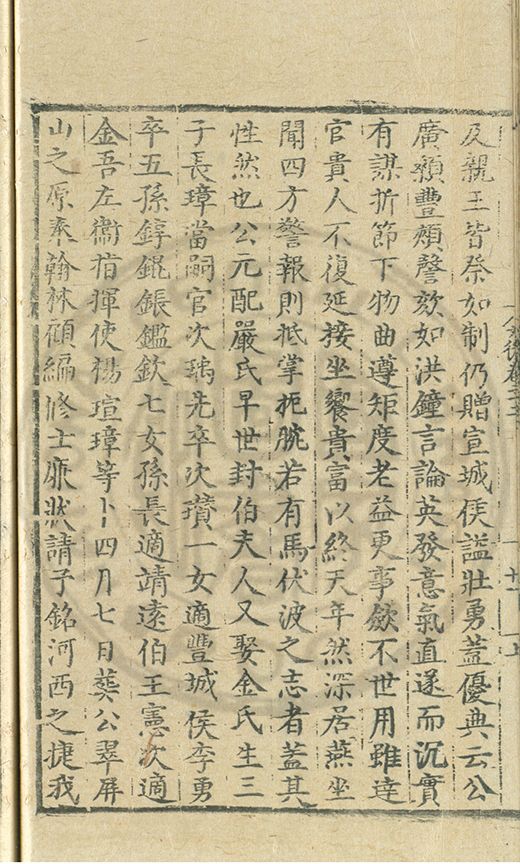 及親王皆祭如制仍贈宣城侯謚壯勇蓋優典云公
廣顙豐頰謦欬如洪鐘言論英發意氣直遂而沉實
有謀折節下物曲遵矩度老益更事欿不世用雖達
官貴人不復延接坐饗貴富以終天年然深居燕坐
聞四方警報則抵掌扼腕若有馬伏波之志者蓋其
性然也公元配嚴氏早世封伯夫人又娶金氏生三
子長璋當嗣官次瑀先卒次瓚一女適豐城侯李勇
卒五孫錞錕鋹鑑欽七女孫長適靖遠伯王憲次適
金吾左衞指揮使楊瑄璋等卜四月七日葬公翠屏
山之原奉翰林顧編修士廉狀請予銘河西之捷我